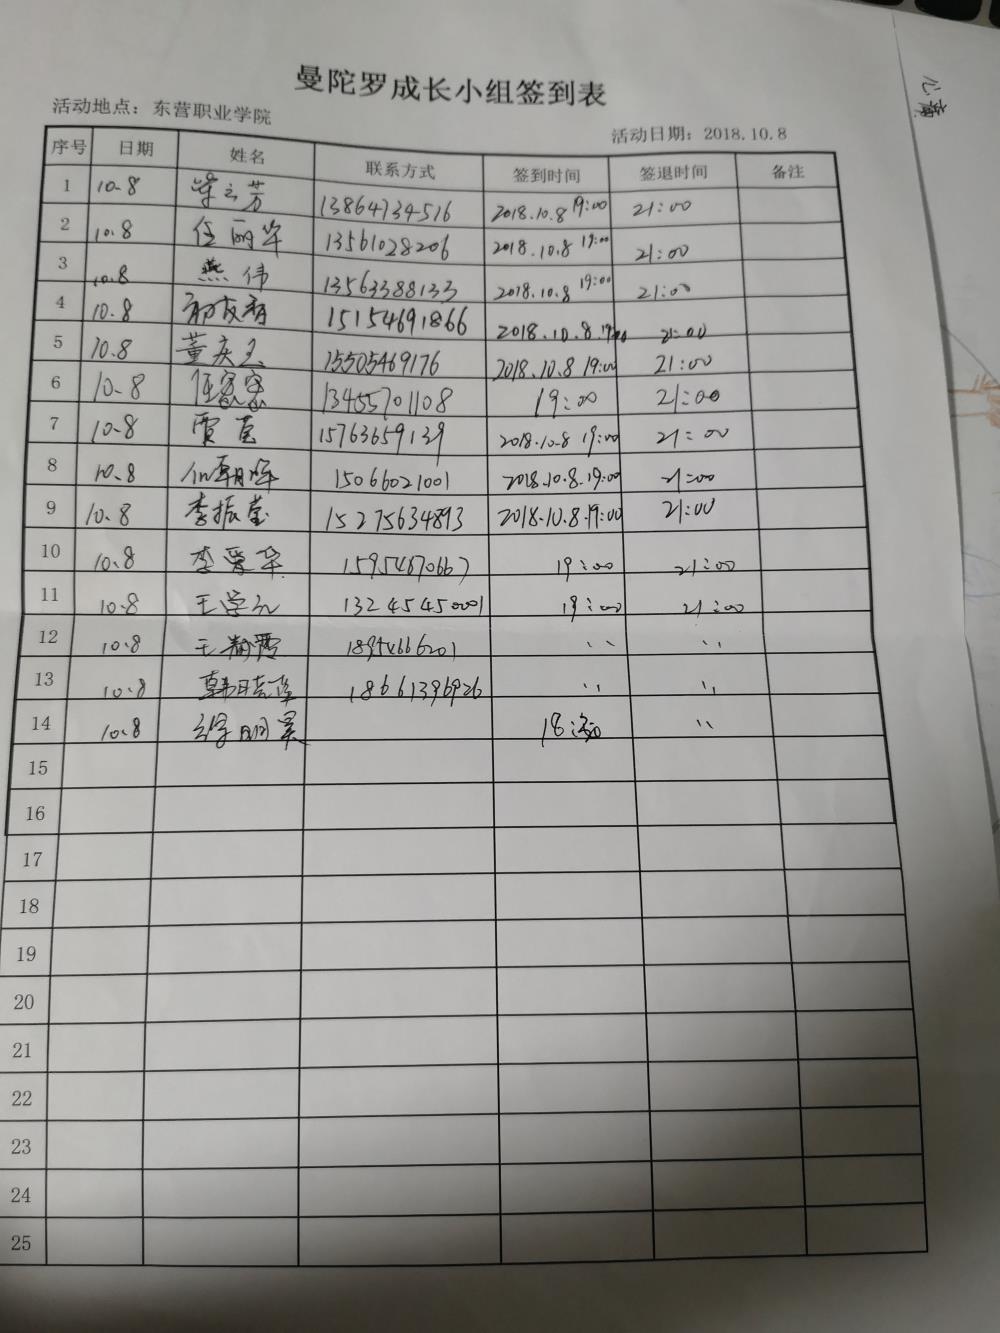 曼陀罗成长小组签到表
活动地点：东营职业学院
活动日期：2018.10.8
序号 日期 姓名 联系方式 签到时间 签退时间 备注
1 10.8 13864734516 2018.10.8 19:00 21:00
2 10.8 任丽华 13561028206 2018.10.8 19:00 21:00
3 10.8 燕伟 13563388133 2018.10.8 19:00 21:00
4 10.8 15154691866 2018.10.8.19:00 21:00
5 10.8 董庆玉 15505469176 2018.10.8 19:00 21:00
6 10.8 任家家 13455701108 19:00 21:00
7 10.8 贾莹 15763659139 2018.10.8 19:00 21:00
8 10.8 15066021001 2018.10.8.19:00 21:00
9 10.8 李振莹 15275634893 2018.10.8.19:00 21:00
10 10.8 李爱华 15954670667 19:00 21:00
11 10.8 王学礼 13245450001 19:00 21:00
12 10.8 18954666201 〃 〃
13 10.8 韩晓萍 18661396926 〃 〃
14 10.8 〃
15
16
17
18
19
20
21
22
23
24
25